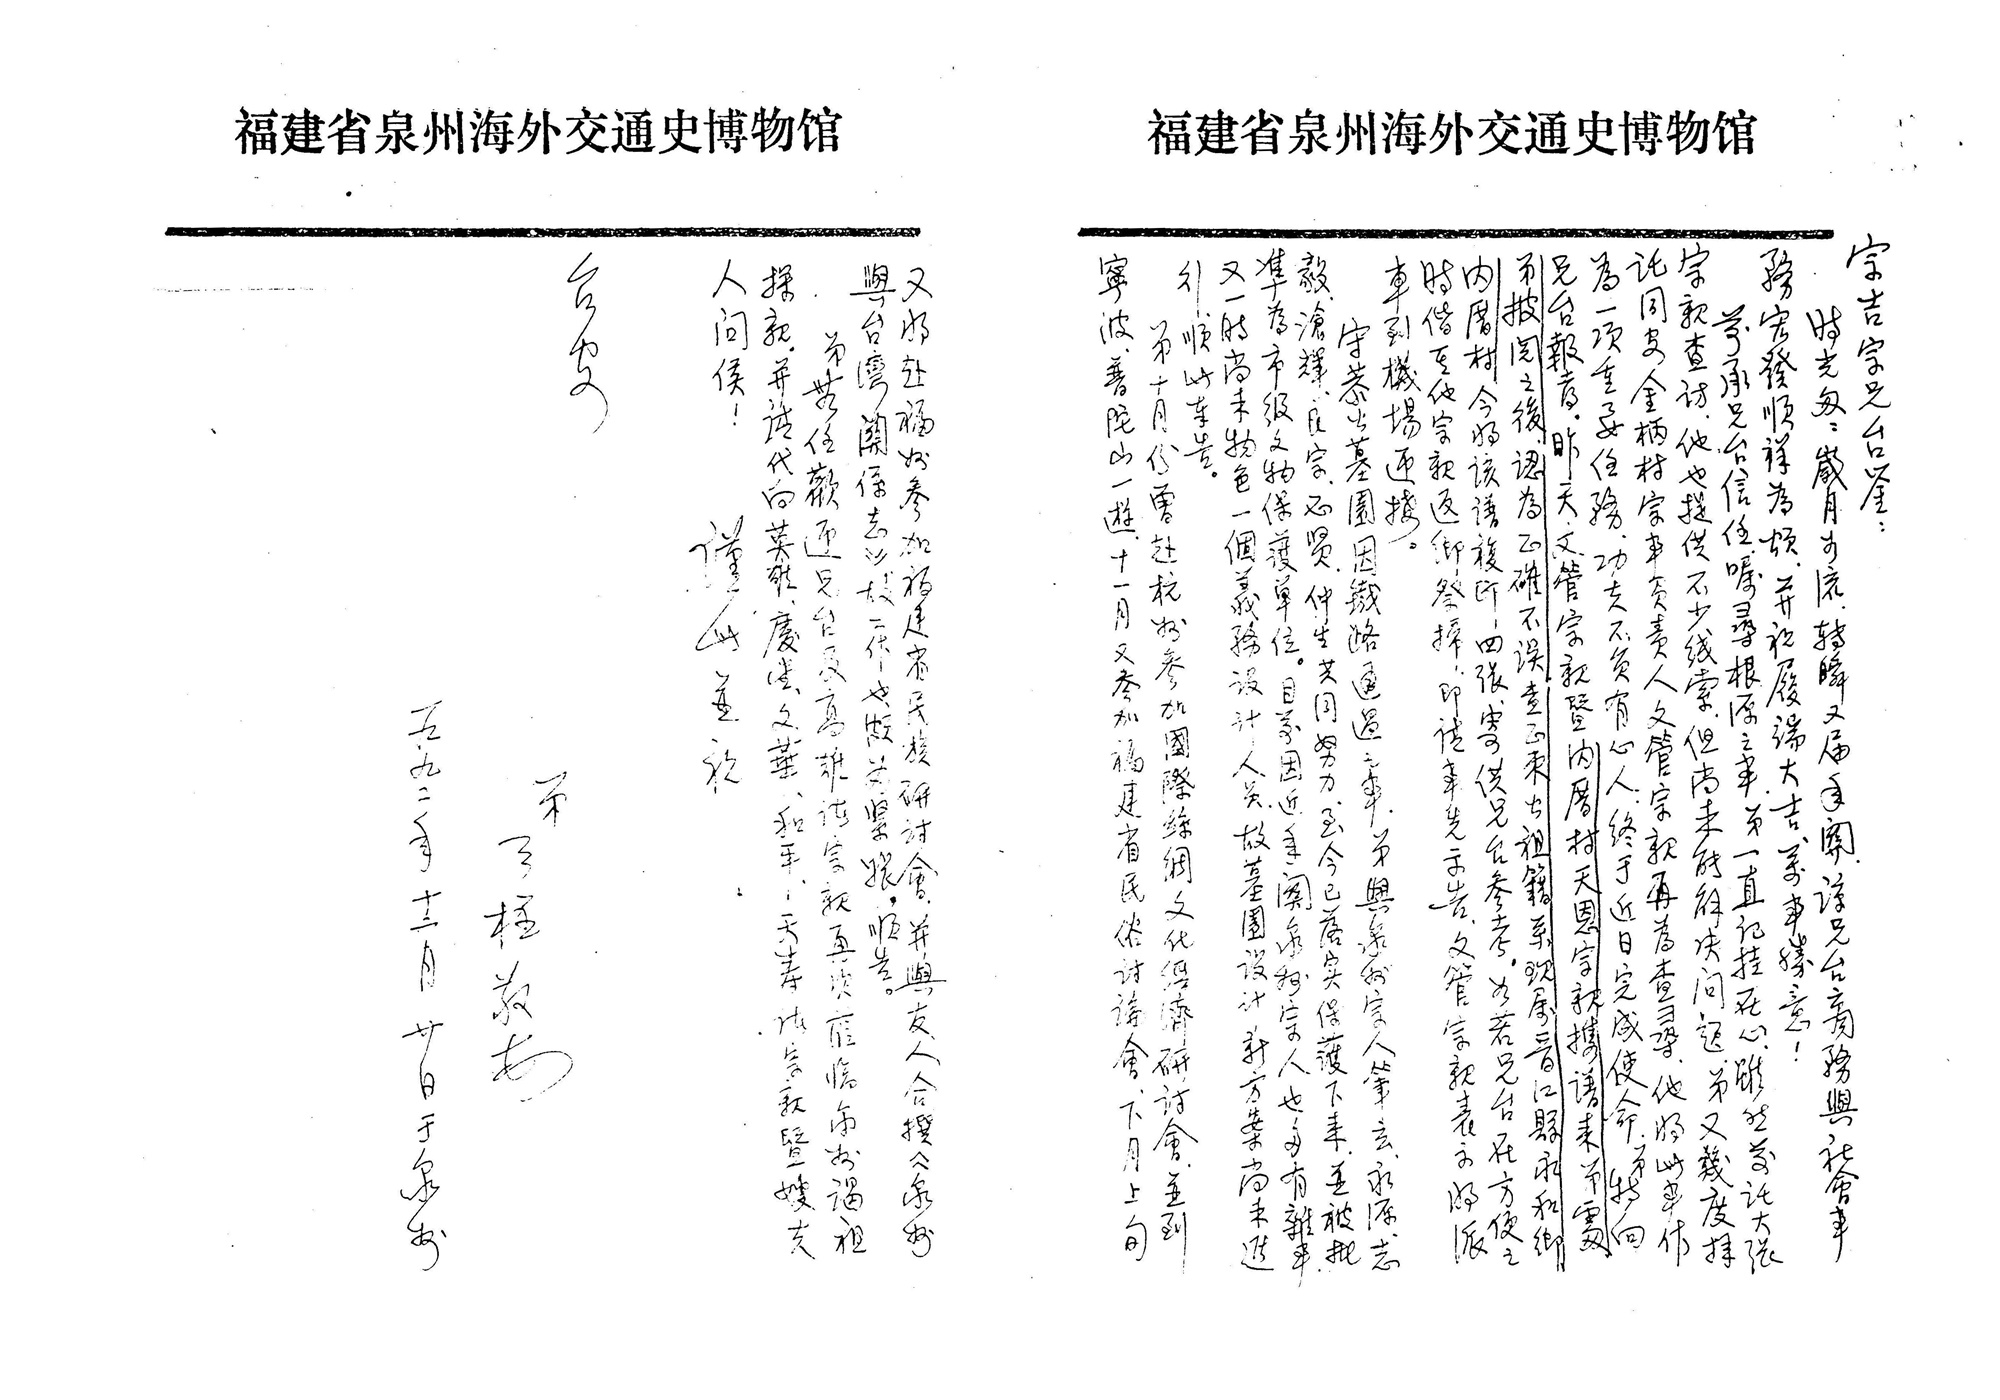 福建省泉州海外交通史博物馆
宗吉宗兄台鉴：
時光匆匆，歲月如流，轉瞬又届年關，諒兄台商務與社會事
務宏發順祥為頌，并祝履端大吉，萬事勝意！
前承兄台信任，嘱尋根源之事，弟一直記挂在心，雖然前託大張
宗親查訪，他也提供不少线索，但尚未能解决问题，弟又幾度拜
託同安金柄村宗事負责人文管宗親再為查尋，他將此事作
為一項重要任務，功夫不负有心人，终于近日完成使命，弟特向
兄台報喜。昨天文管宗親暨内厝村天恩宗親携譜来弟處，
弟披阅之後，認為正確不误，查正東公祖籍系現属晋江縣永和鄉
内厝村，今將该譜複印四张，寄供兄台参考。如若兄台在方便之
時偕其他宗親返鄉祭掃，即請事先示告，文管宗親表示將派
車到機場迎接。
守恭公墓園因鐵路通過之事，弟與泉州宗人肇玄、永源、志
毅、滄輝、民宗、正贤、仲生共同努力至今已落实保護下来，並被批
準為市级文物保護单位。目前因近年關泉州宗人也多有雜事，
又一時尚未物色一個義務設計人员，故墓園設计新方案尚未進
行，順此奉告。
弟十月份曾赴杭州參加國際絲綢文化經濟研討會，並到
寧波、普陀山一遊，十一月又參加福建省民俗討論會，下月上旬
福建省泉州海外交通史博物馆
又將赴福州参加福建省民族研討會，并與友人合撰《泉州
與台灣關係志》，故工作也颇为紧張，順告。
弟等任歡迎兄台及高雄諸宗親再次蒞臨泉州謁祖
探親，并請代向英雄、慶堂、文葉、和平、天寿諸宗親暨嫂夫
人问候！
謹此並祝
台安
弟
敬书
一九九二年十二月廿日于泉州